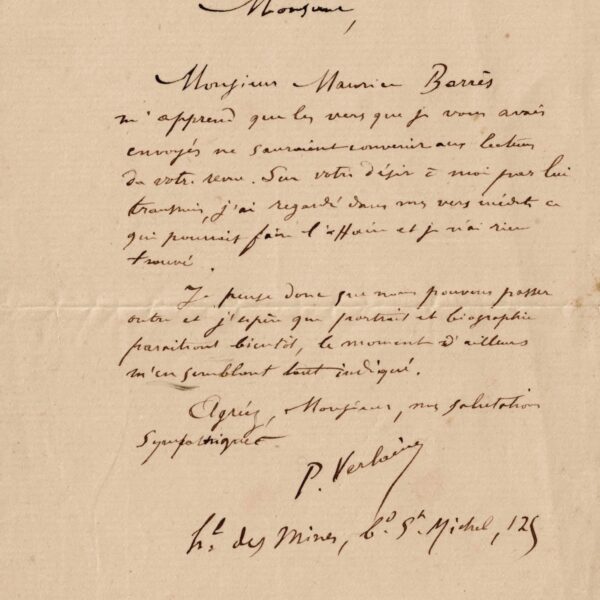 Monsieur,
Monsieur Maurice Barrès
m'apprend que les vers que je vous avais
envoyés ne sauraient convenir aux lecteurs
de votre revue. Sur votre désir à moi par lui
transmis, j'ai regardé dans mes vers inédits ce
qui pourrait faire l'affaire et je n'ai rien
trouvé.
Je pense donc que nous pouvons passer
outre et j'espère que portrait et biographie
paraîtront bientôt, le moment d'ailleurs
m'en semblant tout indiqué.
Agréez, Monsieur, mes salutations
sympathiques.
P. Verlaine
hl des Mines, bd St Michel, 125